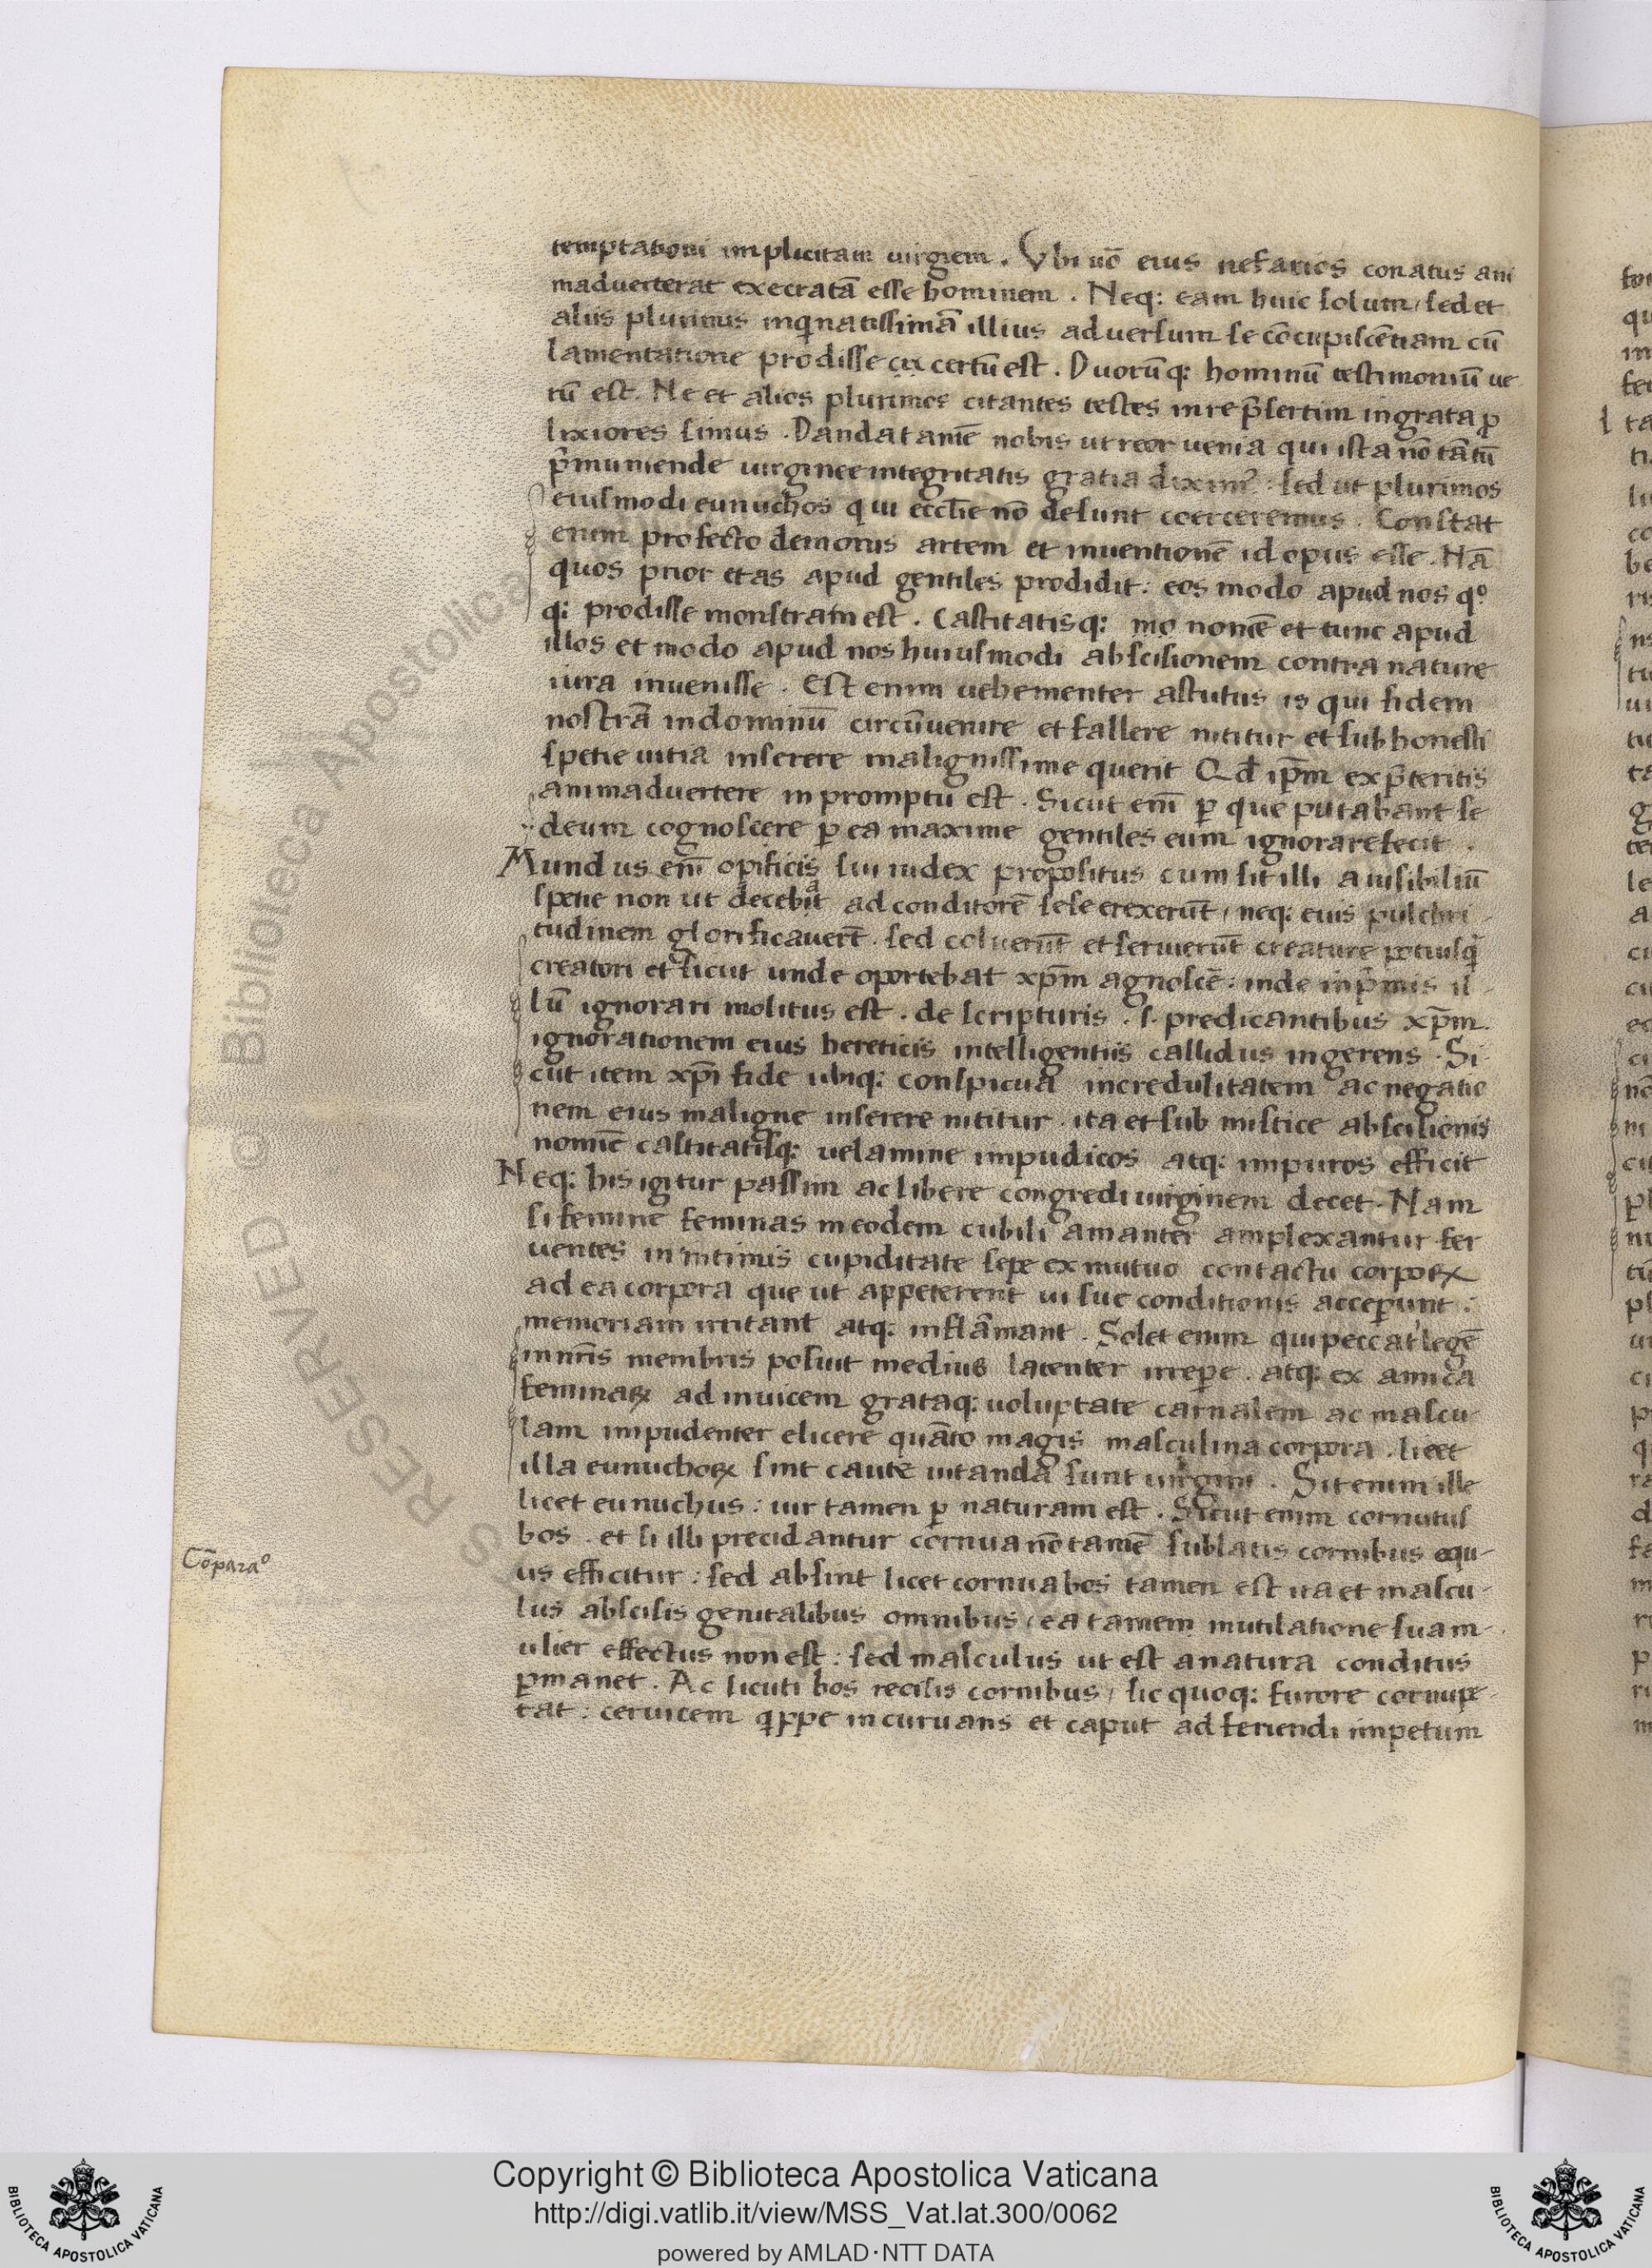 temptationi implicitam uirgiem. Vbi uo᷃ eius nefarios conatus ani
maduerterat execratā esse hominem. Neq: eam huic solum, sed et
aliis plurimis inqnatissimā illius aduersum se cōcupiscētiam cū
lamentatione prodisse certū est. Duorūq: hominū testimoniū ue
rū est. Ne et alios plurimos citantes testes in re p̄sertim ingrata ꝓ
lixiores simus. Danda tamē nobis ut reor uenia qui ista nō tātū
p̄muniende uirginee integritatis gratia diximꝰ: sed ut plurimos
eiusmodi eunuchos qui eccl̄ie nō desunt coerceremus. Constat
enim profecto demonis artem et inuentionē id opus esse. Nā
quos prior etas apud gentiles prodidit: eos modo apud nos qº
q: prodisse monstratū est. Castitatisq: mo nomē et tunc apud
illos et modo apud nos huiusmodi abscisionem contra nature
iura inuenisse. Est enim uehementer astutus is qui fidem
nostrā in dominū circūuenire et fallere nititur et sub honesti
spetie uitia inserere malignissime querit Qd̄ ip̄m ex p̄teritis
animaduertere in promptu est. Sicut em̄ ꝑ que putabant se
deum cognoscere ꝑ ea maxime gentiles eum ignorare fecit.
Mundus em̄ opificis sui iudex propositus cum sit illi a uisibiliū
spetie non ut decebat ad conditorē sese erexerūt, neq: euis pulchri-
tudinem glorificauerūt. sed coluerūt et seruierūt creature potiusq̄
creatori et sicut unde oportebat xp̄m agnoscē: inde inp̄mis il-
lū ignorari molitus est. de scripturis .s. predicantibus xp̄m.
ignorationem eius hereticis intelligentiis callidus ingerens. Si-
cut item xp̄i fide ubiq: conspicua incredulitatem ac negatio
nem eius maligne inserere nititur. ita et sub mistice abscisionis
nomīe castitatisq: uelamine impudicos atq: impuros efficit
Neq: his igitur passim ac libere congredi uirginem decet. Nam
si femine feminas in eodem cubili amanter amplexantur fer
uentes in intimis cupiditate sepe ex mutuo contactu corpoꝝ
ad ea corpora que ut appeterent ui sue conditionis acceꝑunt:
memoriam irritant atq: inflāmant. Solet enim qui peccati legē
in nr̄is membris posuit medius latenter irreꝑe. atq: ex amica
feminaꝝ ad inuicem grataq: uoluptate carnalem ac mascu-
lam impudenter elicere quāto magis masculina corpora. licet
illa eunuchoꝝ sint caute uitanda sunt uirgini. Sit enim ille
licet eunuchus: uir tamen ꝑ naturam est. Sicut enim cornutus
bos. et si illi precidantur cornua nō tamē sublatis cornibus equ-
us efficitur: sed absint licet cornua bos tamen est ita et mascu-
lus abscisis genitalibus omnibus, ea tamem mutilatione sua m-
ulier effectus non est: sed masculus ut est a natura conditus
ꝑmanet. Ac sicuti bos recisis cornibus, sic quoq: furore cornupe-
tat: ceruicem qppe incuruans et caput ad feriendi impetum
Cōparaº
Copyright © Biblioteca Apostolica Vaticana
http://digi.vatlib.it/view/MSS_Vat.lat.300/0062
powered by AMLAD·NTT DATA
BIBLIOTECA APOSTOLICA VATICANA
BIBLIOTECA APOSTOLICA VATICANA